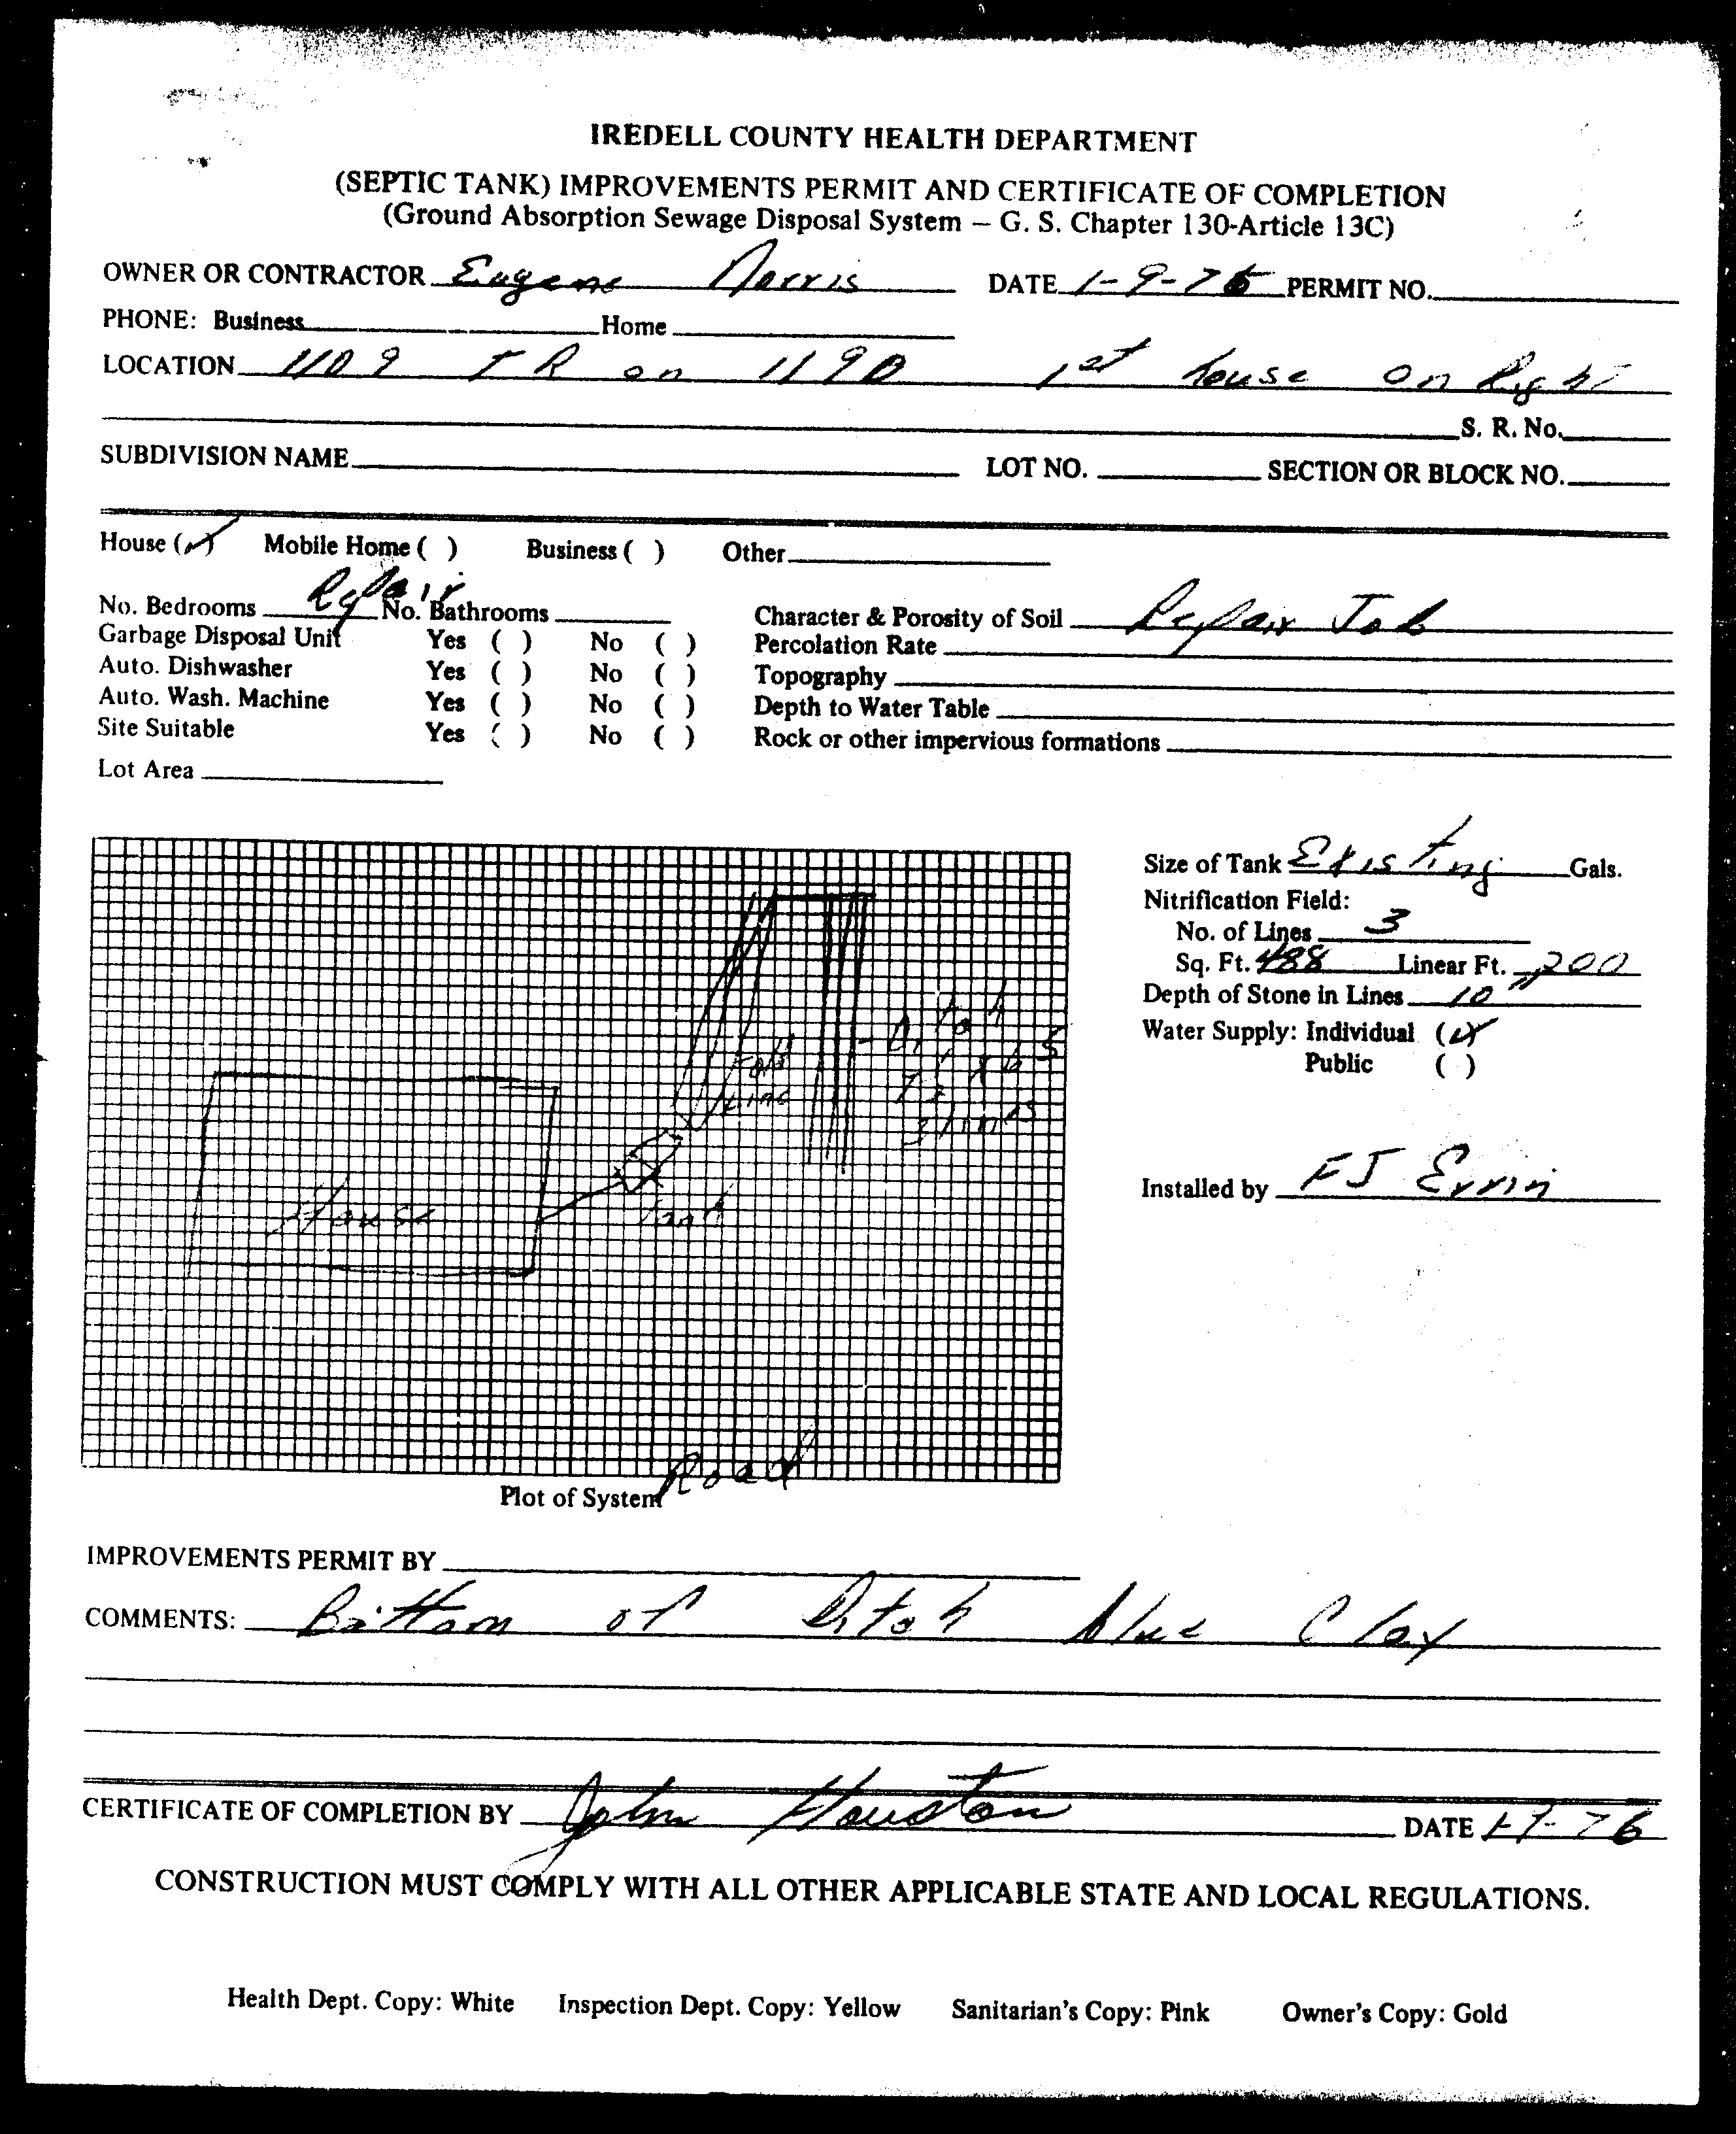 IREDELL COUNTY HEALTH DEPARTMENT
(SEPTIC TANK) IMPROVEMENTS PERMIT AND CERTIFICATE OF COMPLETION
(Ground Absorption Sewage Disposal System – G. S. Chapter 130-Article 13C)
OWNER OR CONTRACTOR Eugene Norris DATE 1-9-76 PERMIT NO.
PHONE: Business Home
LOCATION 1109 TR on 1190 1st house on Right
S. R. No.
SUBDIVISION NAME LOT NO. SECTION OR BLOCK NO.
House (✓) Mobile Home ( ) Business ( ) Other
No. Bedrooms Repair No. Bathrooms Character & Porosity of Soil Repair Job
Garbage Disposal Unit Yes ( ) No ( ) Percolation Rate
Auto. Dishwasher Yes ( ) No ( ) Topography
Auto. Wash. Machine Yes ( ) No ( ) Depth to Water Table
Site Suitable Yes ( ) No ( ) Rock or other impervious formations
Lot Area
Size of Tank Existing Gals.
Nitrification Field:
No. of Lines 3
Sq. Ft. 488 Linear Ft. 200
Depth of Stone in Lines 10"
Water Supply: Individual (✓)
Public ( )
Installed by FJ Ervin
Ditch
Line
3 lines
House
Tank
Road
Plot of System
IMPROVEMENTS PERMIT BY
COMMENTS: Bottom of Ditch Blue Clay
CERTIFICATE OF COMPLETION BY John Houston DATE 1-9-76
CONSTRUCTION MUST COMPLY WITH ALL OTHER APPLICABLE STATE AND LOCAL REGULATIONS.
Health Dept. Copy: White Inspection Dept. Copy: Yellow Sanitarian's Copy: Pink Owner's Copy: Gold